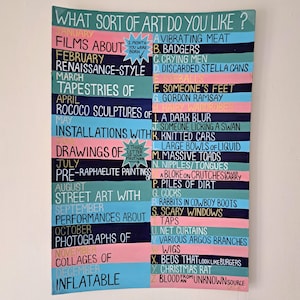 WHAT SORT OF ART DO YOU LIKE ?
FILMS ABOUT
FEBRUARY
RENAISSANCE-STYLE
MARCH
TAPESTRIES OF
APRIL
ROCOCO SCULPTURES OF
MAY
INSTALLATIONS WITH
JUNE
DRAWINGS OF
JULY
PRE-RAPHAELITE PAINTINGS
AUGUST
STREET ART WITH
SEPTEMBER
PERFORMANCES ABOUT
OCTOBER
PHOTOGRAPHS OF
NOV
COLLAGES OF
INFLATABLE
A. VIBRATING MEAT
B. BADGERS
C. CRYING MEN
D. DISCARDED STELLA CANS
F. SOMEONE'S FEET
G. GORDON RAMSAY
I. A DARK BLUR
SOMEONE LICKING A SWAN
K. KNITTED CARS
L. LARGE BOWLS OF LIQUID
M. MASSIVE TOADS
N. NIPPLES/TONGUES
A BLOKE ON CRUTCHES
P. PILES OF DIRT
RABBITS IN COWBOY BOOTS
S. SCARY WINDOWS
TAPS
U. NET CURTAINS
V. VARIOUS ARGOS BRANCHES
WIGS
X. BEDS THAT LOOK LIKE BURGERS
Y. CHRISTMAS RAT
BLOOD FROM AN UNKNOWN SOURCE